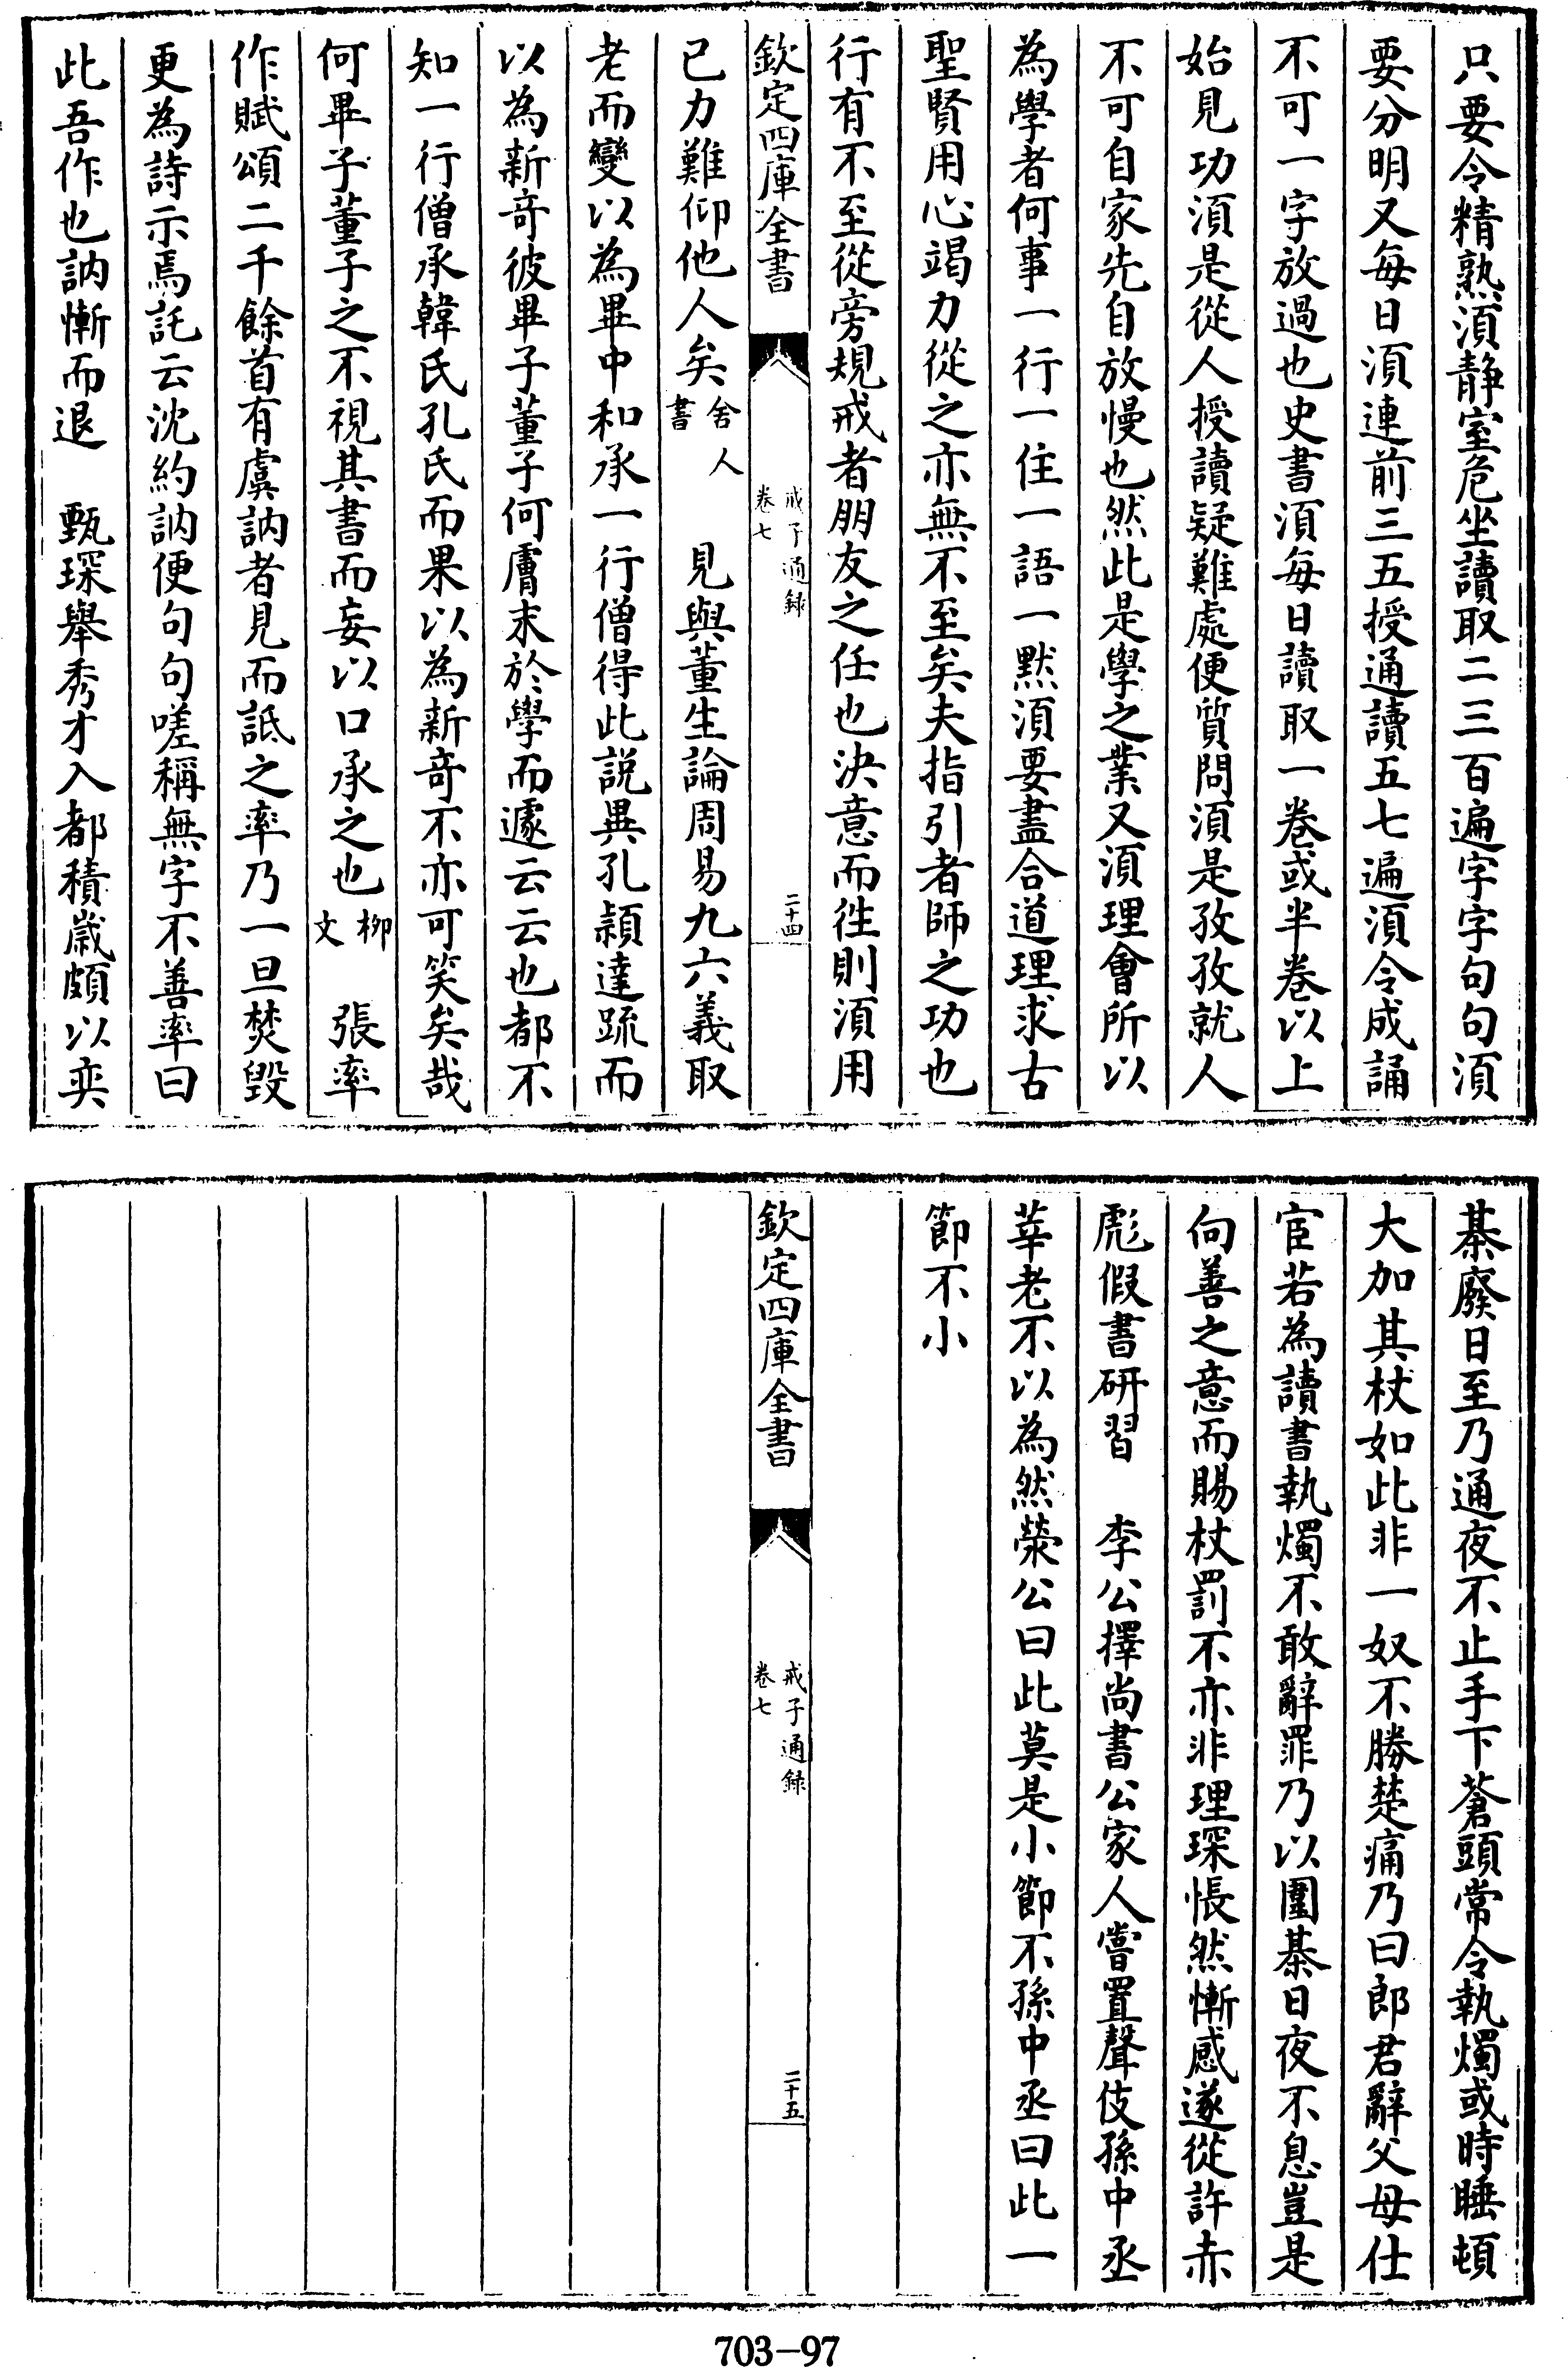 只要令精熟須静室危坐讀取二三百遍字字句句須
要分明又每日須連前三五授通讀五七遍須令成誦
不可一字放過也史書須每日讀取一卷或半卷以上
始見功須是從人授讀疑難處便質問須是孜孜就人
不可自家先自放慢也然此是學之業又須理會所以
為學者何事一行一住一語一黙須要盡合道理求古
聖賢用心竭力從之亦無不至矣夫指引者師之功也
行有不至從旁規戒者朋友之任也決意而徃則須用
欽定四庫全書
戒子通録
卷七
二十四
已力難仰他人矣舍人書 見與董生論周易九六義取
老而變以為畢中和承一行僧得此説異孔頴達疏而
以為新竒彼畢子董子何膚末於學而遽云云也都不
知一行僧承韓氏孔氏而果以為新竒不亦可笑矣哉
何畢子董子之不視其書而妄以口承之也柳文 張率
作賦頌二千餘首有虞訥者見而詆之率乃一旦焚毁
更為詩示焉託云沈約訥便句句嗟稱無字不善率曰
此吾作也訥慚而退 甄琛舉秀才入都積歲頗以奕
棊廢日至乃通夜不止手下蒼頭常令執燭或時睡頓
大加其杖如此非一奴不勝楚痛乃曰郎君辭父母仕
宦若為讀書執燭不敢辭罪乃以圍棊日夜不息豈是
向善之意而賜杖罰不亦非理琛悵然慚感遂從許赤
彪假書研習 李公擇尚書公家人嘗置聲伎孫中丞
莘老不以為然滎公曰此莫是小節不孫中丞曰此一
節不小
欽定四庫全書
戒子通録
卷七
二十五
703-97